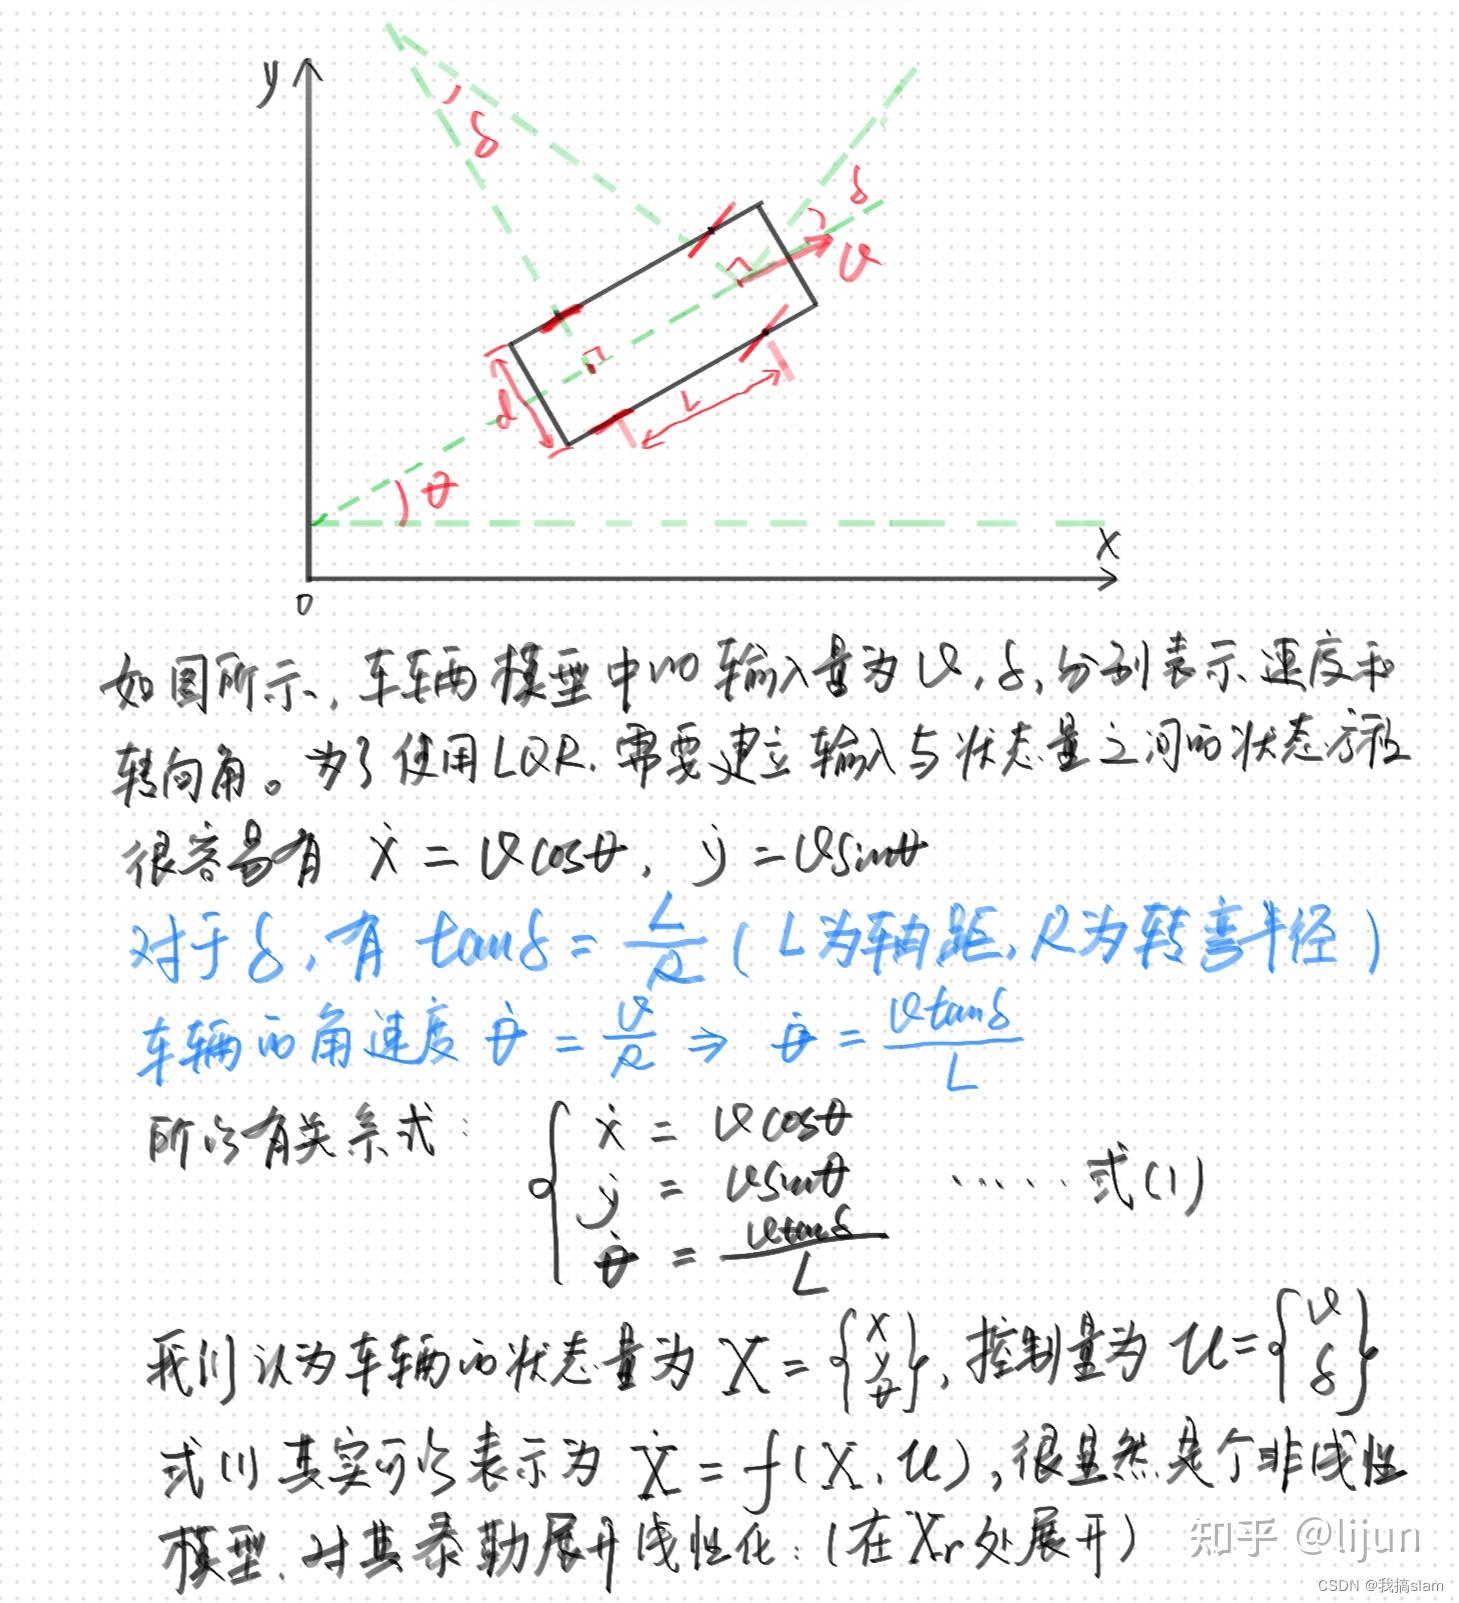 y
δ
δ
v
d
L
θ
x
0
如图所示,车辆模型中的输入量为 v,δ,分别表示速度和
转向角。为了使用LQR,需要建立输入与状态量之间的状态方程
很容易有 ẋ = vcosθ, ẏ = vsinθ
对于δ,有 tanδ = L/R (L为轴距,R为转弯半径)
车辆的角速度 θ̇ = v/R ⇒ θ̇ = vtanδ/L
所以有关系式: { ẋ = vcosθ
ẏ = vsinθ ……式(1)
θ̇ = vtanδ/L
我们认为车辆的状态量为 X = {x y θ}, 控制量为 u = {v δ}
式(1)其实可以表示为 Ẋ = f(X, u), 很显然是个非线性
模型,对其泰勒展开线性化:(在Xr处展开)
知乎 @lijun
CSDN @我搞slam